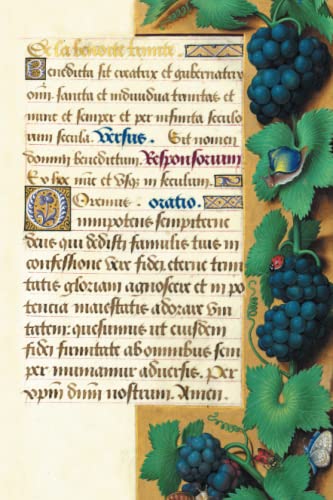 De la benoiste trinite
Benedicta sit creatrix et gubernatrix
omnium sancta et individua trinitas et
nunc et semper et per infinita seculo
rum secula. Versus. Sit nomen
domini benedictum. Responsorium
Ex hoc nunc et usque in seculum.
Oremus. oratio.
Omnipotens sempiterne
deus qui dedisti famulis tuis in
confessione vere fidei eterne trini
tatis gloriam agnoscere et in po
tencia maiestatis adorare vni
tatem: quesumus ut eiusdem
fidei firmitate ab omnibus sem
per muniamur adversis. Per
xpm dnm nostrum. Amen.